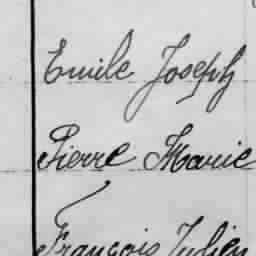 Emile Joseph
Pierre Marie
François Julien